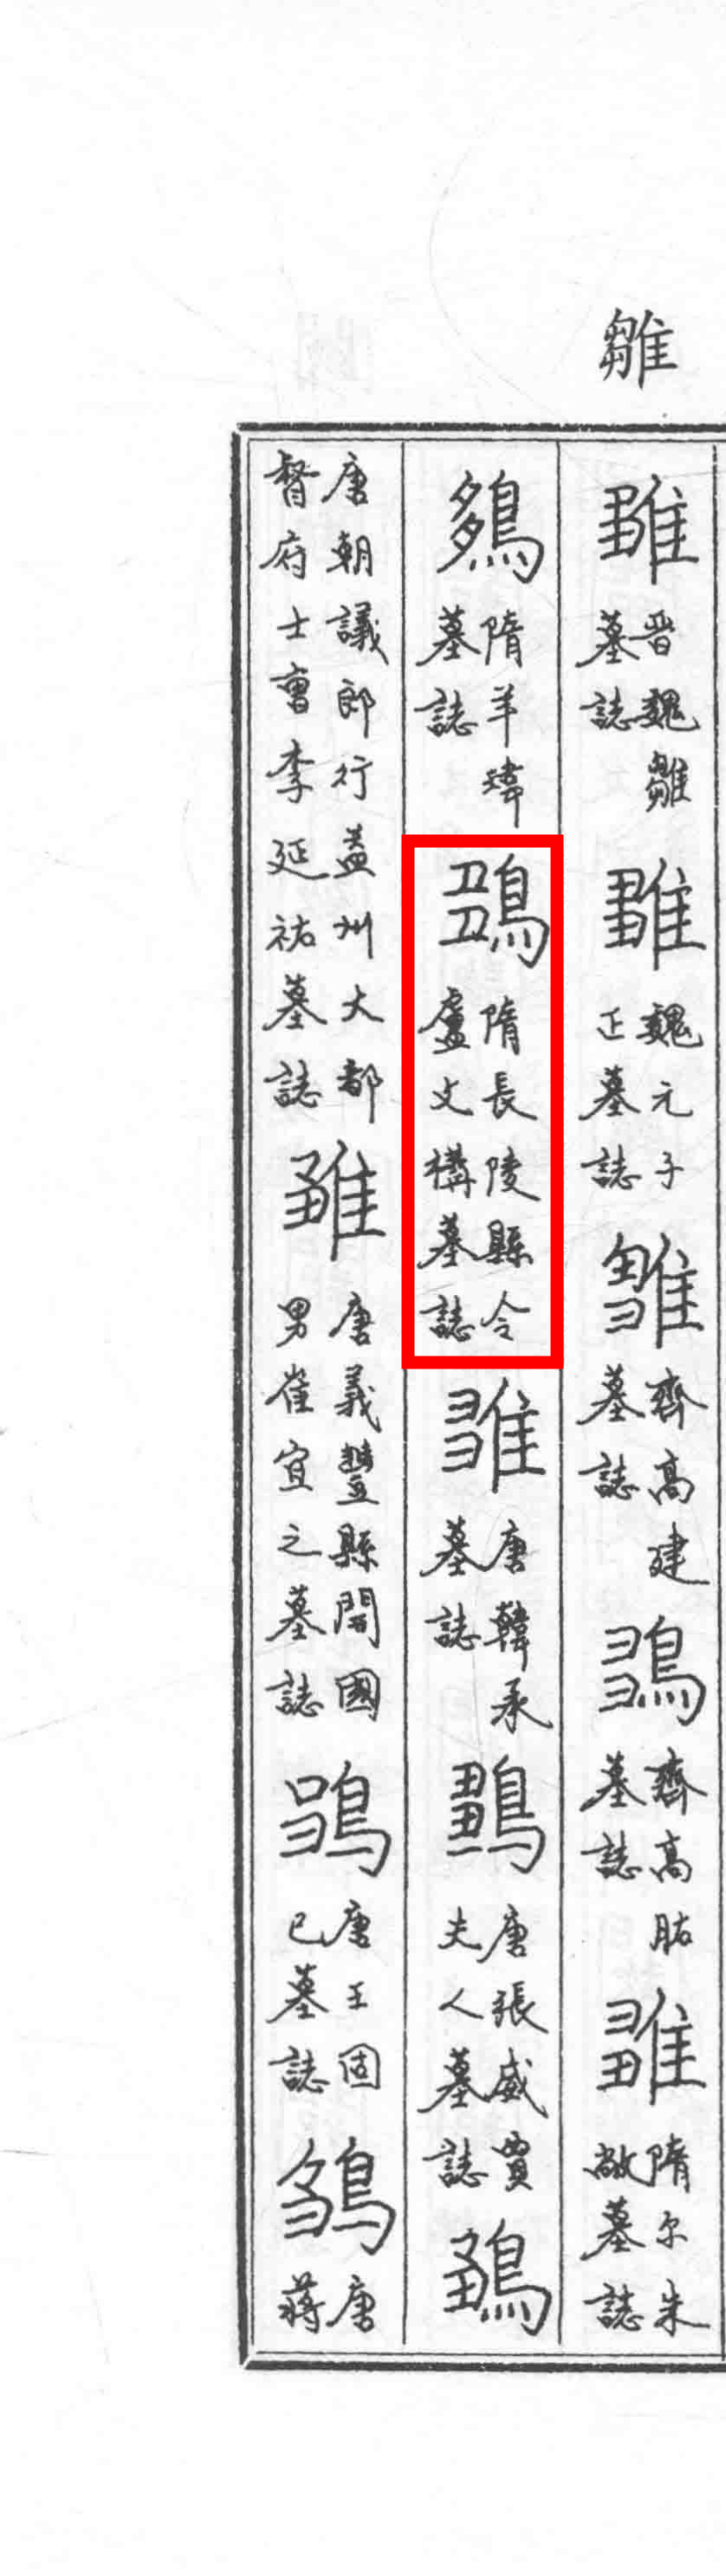 雛
晉魏雛
墓誌
魏元子
正墓誌
齊高建
墓誌
齊高肱
墓誌
隋尒朱
敞墓誌
隋羊瑋
墓誌
隋長陵縣令
盧文構墓誌
唐韓承
墓誌
唐張威賈
夫人墓誌
唐朝議郎行益州大都
督府士曹李延祐墓誌
唐義豐縣開國
男崔宜之墓誌
唐王固
己墓誌
唐
蔣